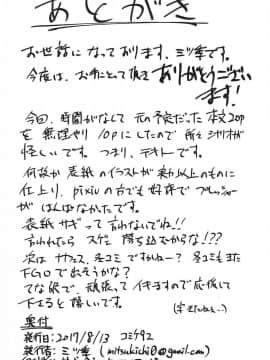 あとがき
お世話になっております、ミツ季です。
今度は、お手にとって頂き
ありがとうござい
ます!
今回、時間がなくて元の予定だった本文20p
を無理やり10pにしたので所々シナリオが
怪しいです。つまり、テキトーです。
何故か表紙のイラストが実力以上のものに
仕上り、pixivの方でも好評でプレッシャー
がはんぱなかたです。
表紙サギって言わないでね!!
言われたらスゲェ落ち込むからな!??
次はサンクス、冬コミですかねー?冬コミもまた
FGOでおそうかな?
てな訳で、頑張ってイキますので応援して
下さると嬉しいです。
奥付
発行日:2017/8/13 コミケ92
発行者:ミツ季(mitsukichi0@gmail.com)